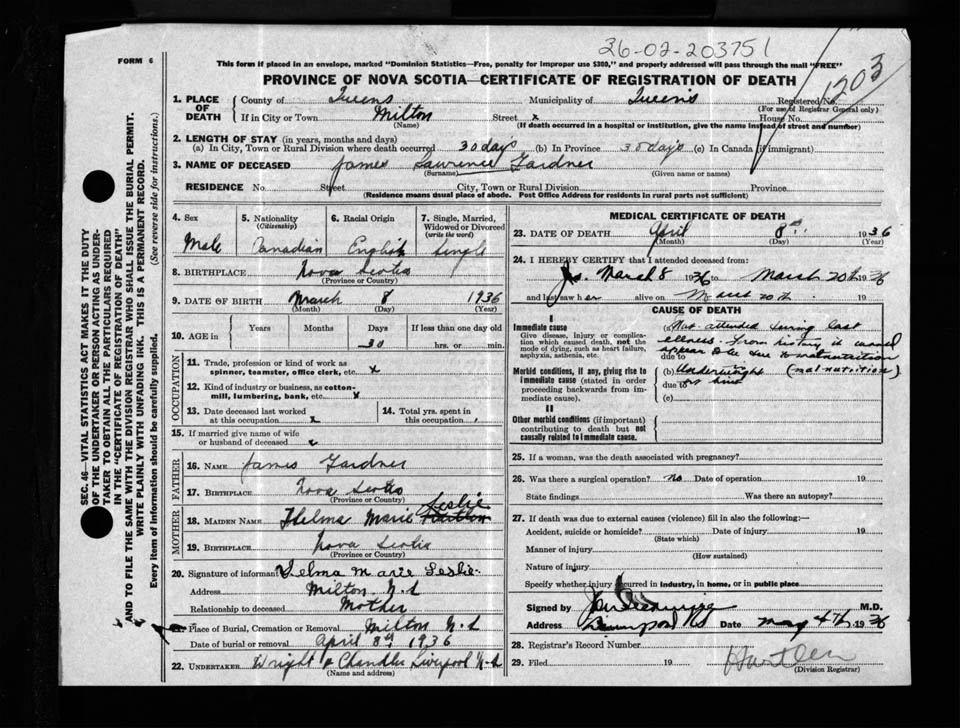 26-02-203751
FORM 6
This form if placed in an envelope, marked "Dominion Statistics—Free, penalty for improper use $300," and properly addressed will pass through the mail "FREE"
PROVINCE OF NOVA SCOTIA—CERTIFICATE OF REGISTRATION OF DEATH
1203
SEC. 46—VITAL STATISTICS ACT MAKES IT THE DUTY
OF THE UNDERTAKER OR PERSON ACTING AS UNDER-
TAKER TO OBTAIN ALL THE PARTICULARS REQUIRED
IN THE "CERTIFICATE OF REGISTRATION OF DEATH"
AND TO FILE THE SAME WITH THE DIVISION REGISTRAR WHO SHALL ISSUE THE BURIAL PERMIT.
WRITE PLAINLY WITH UNFADING INK. THIS IS A PERMANENT RECORD.
Every item of information should be carefully supplied. (See reverse side for instructions.)
1. PLACE OF DEATH County of Queens Municipality of Queens Registered No.
(For use of Registrar General only)
If in City or Town Milton Street x House No.
(Name) (If death occurred in a hospital or institution, give the name instead of street and number)
2. LENGTH OF STAY (in years, months and days)
(a) In City, Town or Rural Division where death occurred 30 days (b) In Province 30 days (c) In Canada (if immigrant)
3. NAME OF DECEASED James Lawrence Gardner
(Surname) (Given name or names)
RESIDENCE No. Street City, Town or Rural Division Province
(Residence means usual place of abode. Post Office Address for residents in rural parts not sufficient)
4. Sex
Male
5. Nationality
(Citizenship)
Canadian
6. Racial Origin
English
7. Single, Married, Widowed or Divorced
(write the word)
Single
8. BIRTHPLACE Nova Scotia
(Province or Country)
9. DATE OF BIRTH March 8 1936
(Month) (Day) (Year)
10. AGE in Years Months Days If less than one day old
30 hrs. or min.
OCCUPATION
11. Trade, profession or kind of work as
spinner, teamster, office clerk, etc. x
12. Kind of industry or business, as cotton-
mill, lumbering, bank, etc. x
13. Date deceased last worked
at this occupation x
14. Total yrs. spent in
this occupation
15. If married give name of wife
or husband of deceased x
FATHER
16. NAME James Gardner
17. BIRTHPLACE Nova Scotia
(Province or Country)
MOTHER
18. MAIDEN NAME Thelma Marie Leslie
19. BIRTHPLACE Nova Scotia
(Province or Country)
20. Signature of informant Thelma Marie Leslie
Address Milton N.S
Relationship to deceased Mother
21. Place of Burial, Cremation or Removal Milton N.S
Date of burial or removal April 8th 1936
22. UNDERTAKER Wright & Chandler Liverpool N.S
(Name and address)
MEDICAL CERTIFICATE OF DEATH
23. DATE OF DEATH April 8th 1936
(Month) (Day) (Year)
24. I HEREBY CERTIFY that I attended deceased from:
March 8 1936 to March 20th 1936
and last saw h er alive on March 20th 19
CAUSE OF DEATH
I
Immediate cause
Give disease, injury or complica-
tion which caused death, not the
mode of dying, such as heart failure,
asphyxia, asthenia, etc.
(a) Not attended during last
illness. From history it would
appear to be due to malnutrition
due to
Morbid conditions, if any, giving rise to
immediate cause (stated in order
proceeding backwards from im-
mediate cause).
(b) Underweight (malnutrition)
due to at birth
(c)
II
Other morbid conditions (if important)
contributing to death but not
causally related to immediate cause.
25. If a woman, was the death associated with pregnancy?
26. Was there a surgical operation? no Date of operation 19
State findings Was there an autopsy?
27. If death was due to external causes (violence) fill in also the following:—
Accident, suicide or homicide? Date of injury 19
(State which)
Manner of injury
(How sustained)
Nature of injury
Specify whether injury occurred in industry, in home, or in public place
Signed by M.D.
Address Liverpool NS Date May 4th 1936
28. Registrar's Record Number
29. Filed 19
(Division Registrar)